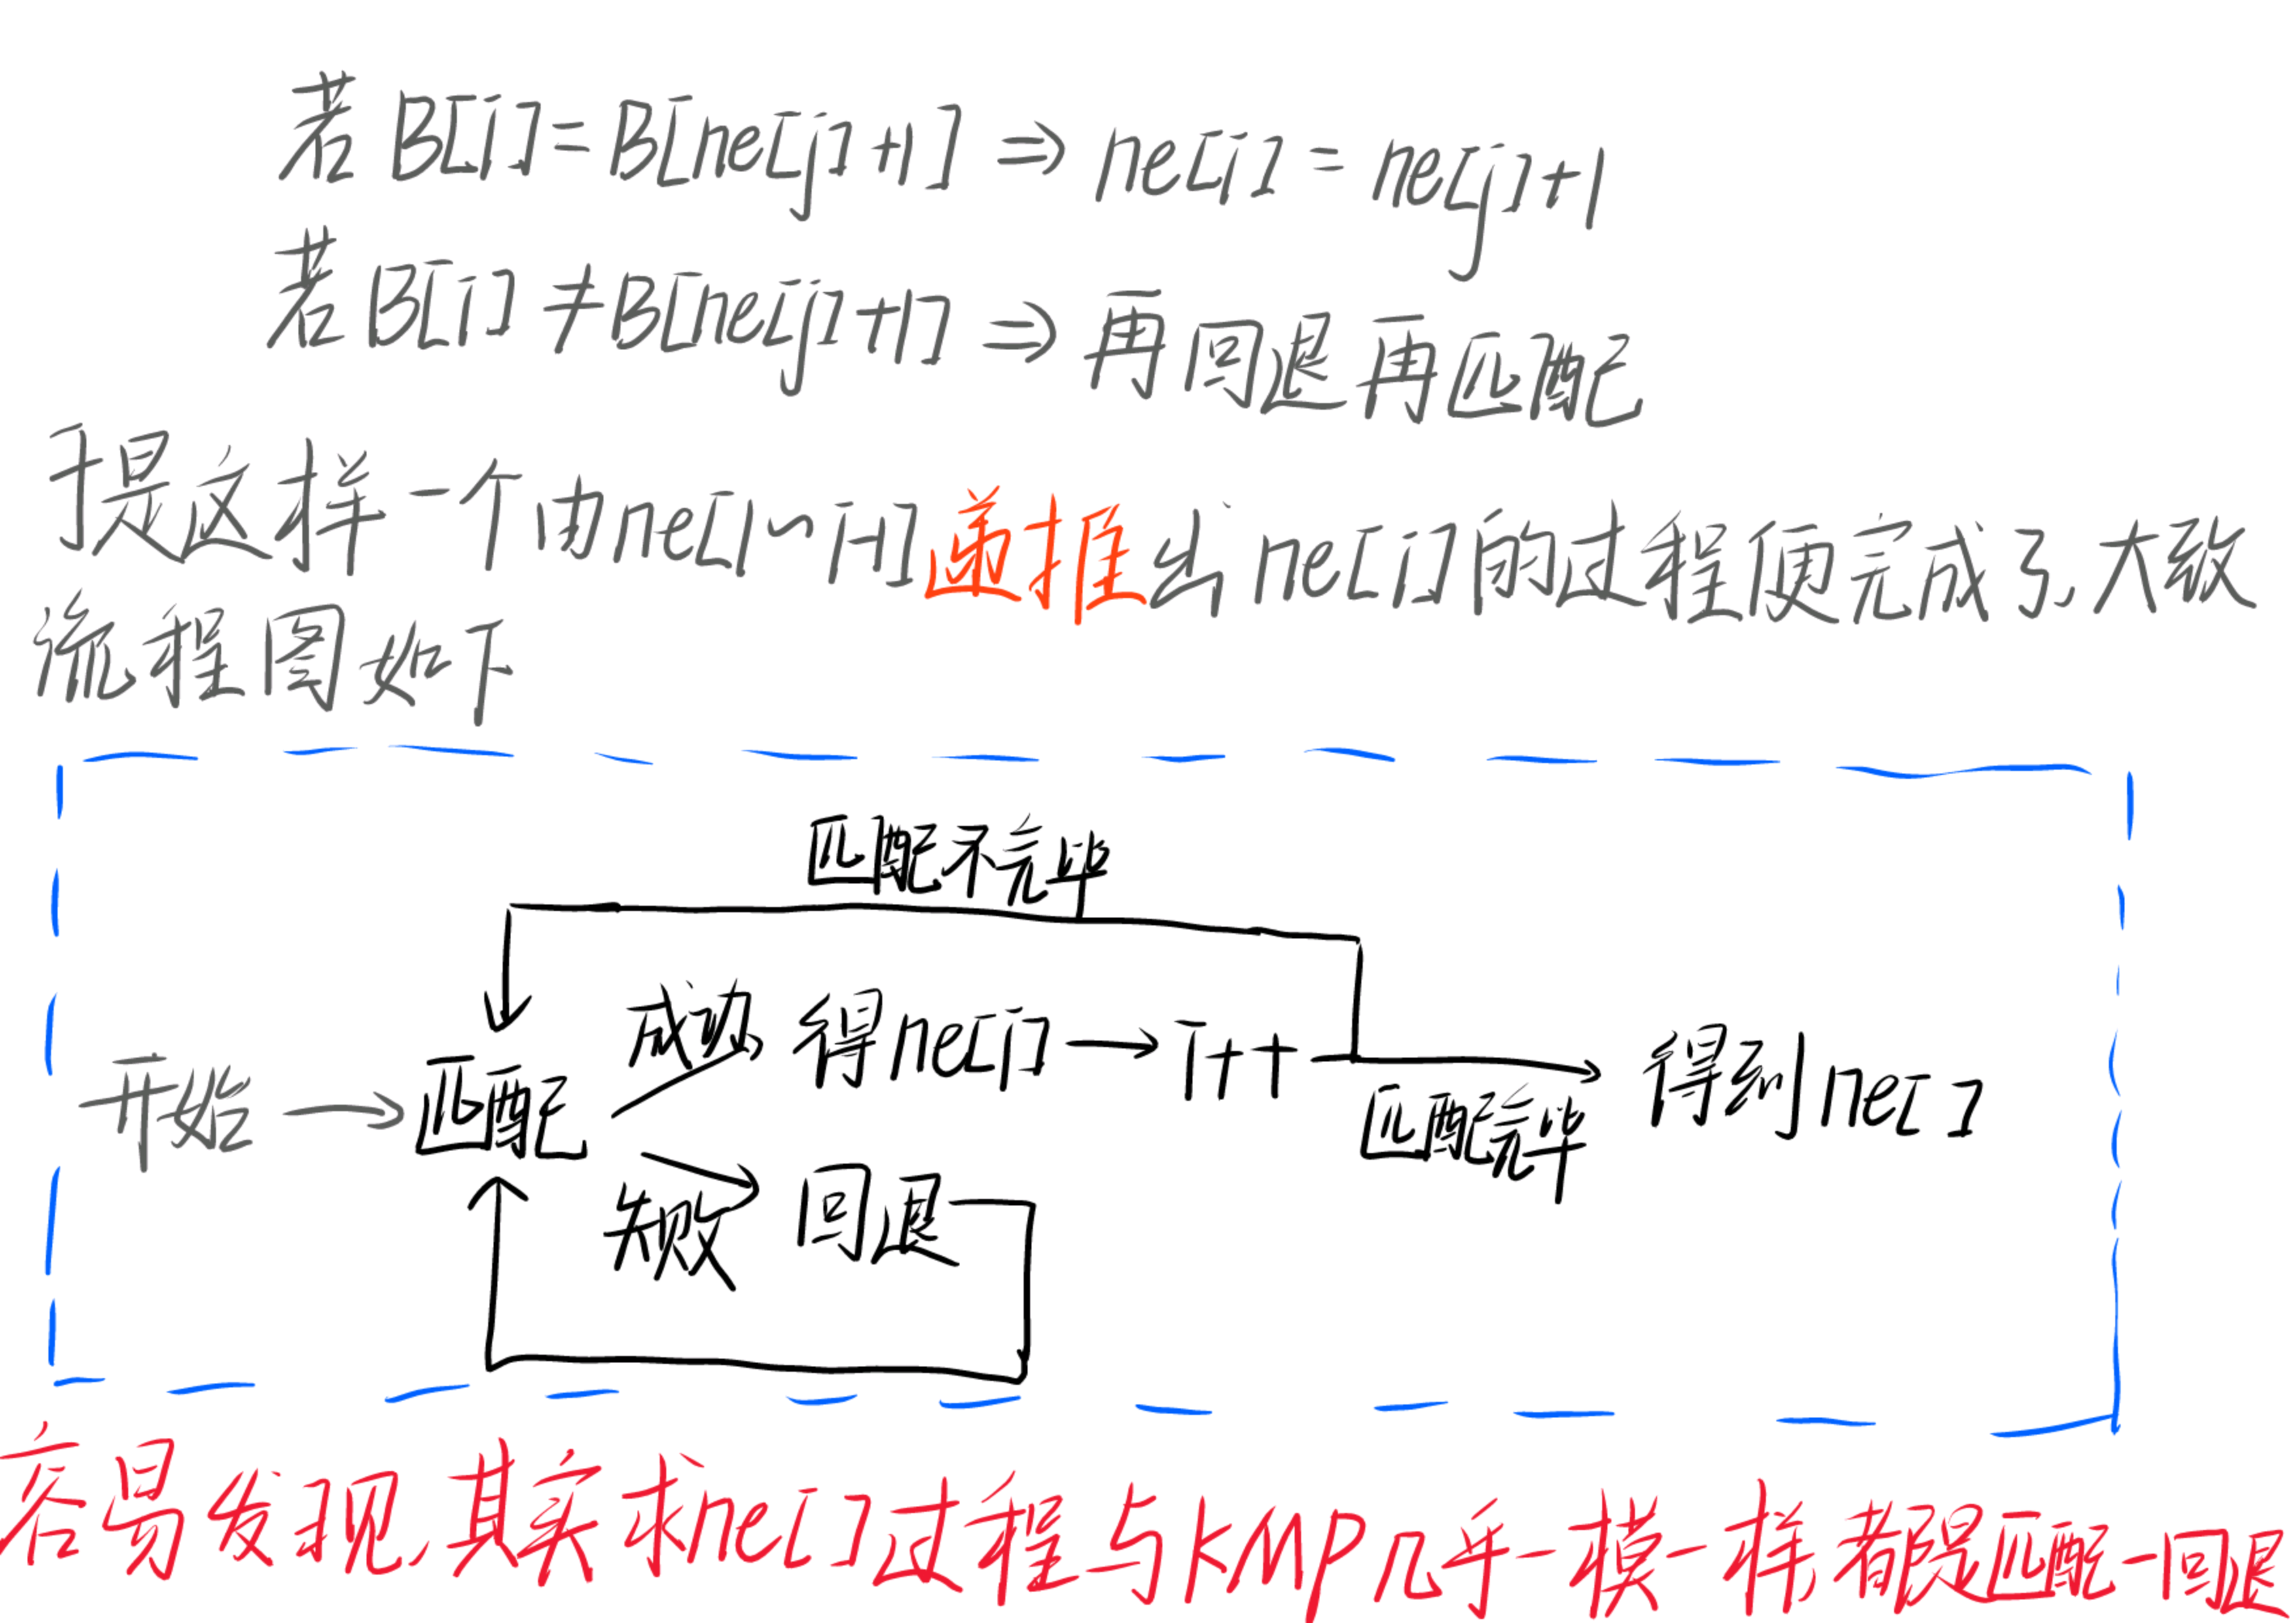 若 B[i] = B[ne[j]+1] ⇒ ne[i] = ne[j]+1
若 B[i] ≠ B[ne[j]+1] ⇒ 再回退再匹配
于是这样一个由ne[1~i-1]递推出ne[i]的过程便完成了,大致
流程图如下
匹配不完毕
成功 得ne[i] → i++
开始 → 匹配
匹配完毕
得到ne[]
失败 回退
容易发现,其实求ne[]过程与KMP几乎一模一样都是匹配-回退